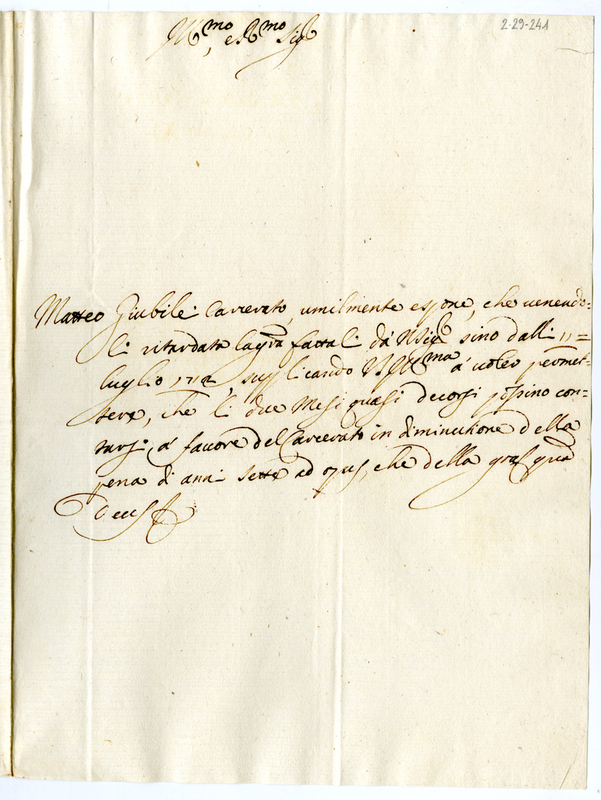 2-29-241
Ill.mo, e R.mo Sig.
Matteo Giubili Carcerato, umilmente espone, che venendo-
li ritardata la gra fattali da NSig. sino dalli 11=
luglio 1712, supplicando VSIll.ma à voler permet-
tere, che li due Mesi quasi decorsi possino con-
tarsi, a' favore del Carcerato in diminutione della
pena di anni sette ad opus, che della gra quā
Deus